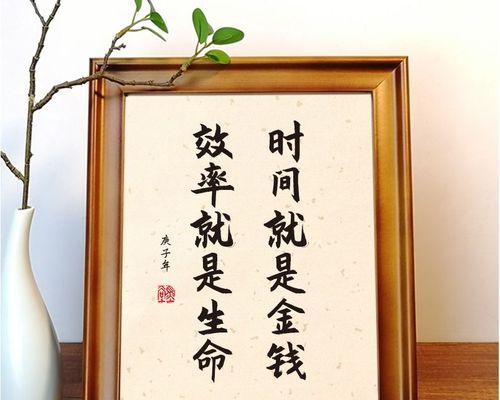 时间就是金钱
效率就是生命
庚子年